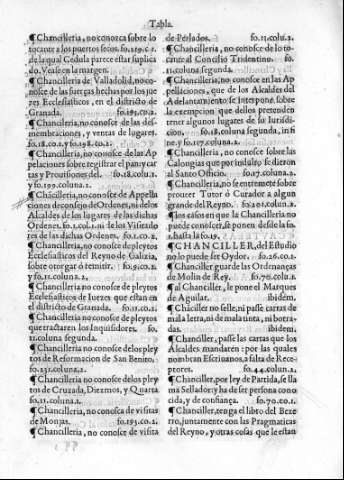 Tabla.
¶Chancilleria, no conozca sobre lo
tocante a los puertos secos. fo.119.c.1.
de la qual Cedula parece estar suplica
do. Vease en la margen.
¶Chancilleria de Valladolid, no co-
nosce de las fuerças hechas por los jue
zes Ecclesiasticos, en el districto de
Granada. fo.195.co.2.
¶Chancilleria, no conosce de las des-
membraciones, y ventas de lugares.
fo.18.co.1. y fo.198.co.2.
¶Chancilleria, no conosce de las Ap
pelaciones sobre registrar el pan, y car
tas y Prouisiones del. fo.18.colu.1.
y fo.199.coluna.2.
¶Chãcilleria, no conosce de Appella
ciones de consejo de Ordenes, ni de los
Alcaldes de los lugares de las dichas
Ordenes. fo.1.col.1. ni de los Visitado
res de las dichas Ordenes. fo.1.co.2.
¶Chancilleria no conosce de pleytos
Ecclesiasticos del Reyno de Galizia,
sobre otorgar ó remitir. fo.9.co.2.
y fo.11.coluna.2.
¶Chancilleria no conosce de pleytos
Ecclesiasticos de Iuezes que estan en
el districto de Granada. fo.11.co.1.
¶Chancilleria no conosce de pleytos
que trataren los Inquisidores. fo.
11.coluna segunda.
¶Chancilleria no conosce de los pley
tos de Reformacion de San Benito.
fo.131.coluna.2.
¶Chancilleria no conosce de los pley
tos de Cruzada, Diezmos, y Quarta
fo.11.coluna.2.
¶Chancilleria, no conosce de visitas
de Monjas. fo.195.co.2.
¶Chancilleria, no conosce de visita
de Perlados. fo.11.colu.2.
¶Chancilleria, no conosce de lo to-
cante al Concilio Tridentino. fo.
11.coluna segunda.
¶Chancilleria, no conosce en las Ap
pellaciones, que de los Alcaldes del
Adelantamiento se interpone sobre
la exempcion que dellos pretenden
tener algunos lugares de su Iurisdi-
ction. fo.18.coluna segunda, in fi
ne, y fo.117.coluna.2.
¶Chancilleria, no conosce sobre las
Calongias que por indulto se dieron
al Santo Officio. fo.27.coluna.2.
¶Chancilleria, no se entremete sobre
proueer Tutor ó Curador a algun
grande del Reyno. fo.201.colun.2.
¶los casos en que la Chancilleria no
puede conoscer, se ponen desde la fo.
1. hasta la fo.19.
¶CHANCILLER, del Estudio
no lo puede ser Oydor. fo.26.co.1.
¶Chanciller guarde las Ordenanças
de Molin de Rey. fo.76.colu.2.
¶al Chanciller, le pone el Marques
de Aguilar. ibidem.
¶Chãciller no selle, ni passe cartas de
mala letra, ni de mala tinta, ni borra-
das. ibidem.
¶Chanciller, passe las cartas que los
Alcaldes mandaren: por las quales
nombran Escriuanos, a falta de Rece-
ptores. fo.44.colun.2.
¶Chanciller, por ley de Partida, se lla
ma Sellador: y ha de ser persona cono
cida, y de confiança. fo.70.co.1.
¶Chanciller, tenga el libro del Beze
rro, juntamente con las Pragmaticas
del Reyno, y otras cosas que le estan